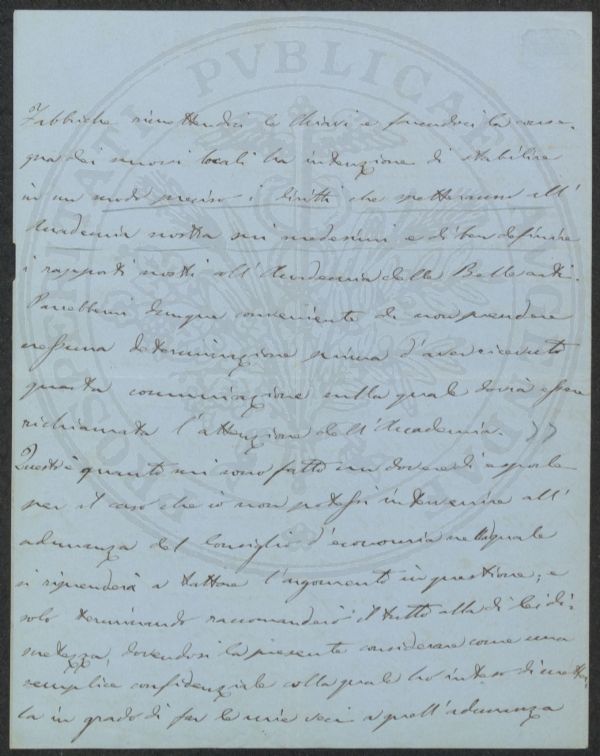 Fabbriche rimettendoci le Chiavi e facendoci la conse-
gna dei nuovi locali ha intenzione di stabilire
in un modo preciso i diritti che spetteranno all'
Accademia nostra sui medesimi e di ben definire
i rapporti nostri coll'Accademia delle Belle arti.
Parebbemi dunque conveniente di non prendere
nessuna determinazione prima d'aver ricevuto
questa comunicazione sulla quale dovrà essere
richiamata l'attenzione dell'Accademia. »
Questo è quanto mi sono fatto un dovere di esporle
per il caso che io non potessi intervenire all'
adunanza del Consiglio d'economia nella quale
si riprenderà a trattare l'argomento in questione; e
solo terminando raccomanderò il tutto alla di Lei di-
scretezza, dovendosi la presente considerare come una
semplice confidenziale colla quale ho inteso di metter-
la in grado di far le mie veci a quell'adunanza
PROSPERITATI PVBLICAE AVGENDAE